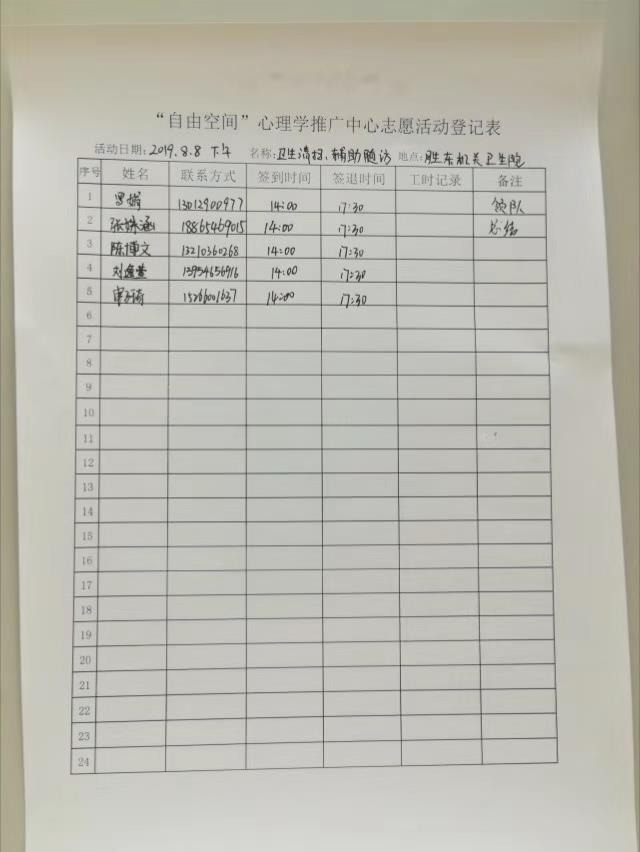 “自由空间”心理学推广中心志愿活动登记表
活动日期：2019.8.8 下午 名称：卫生清扫、辅助随访 地点：胜东机关卫生院
序号 姓名 联系方式 签到时间 签退时间 工时记录 备注
1 罗娟 13012900977 14:00 17:30 领队
2 张姝涵 18865469015 14:00 17:30 总结
3 陈博文 13210360268 14:00 17:30
4 13954656916 14:00 17:30
5 15266001637 14:00 17:30
6
7
8
9
10
11
12
13
14
15
16
17
18
19
20
21
22
23
24